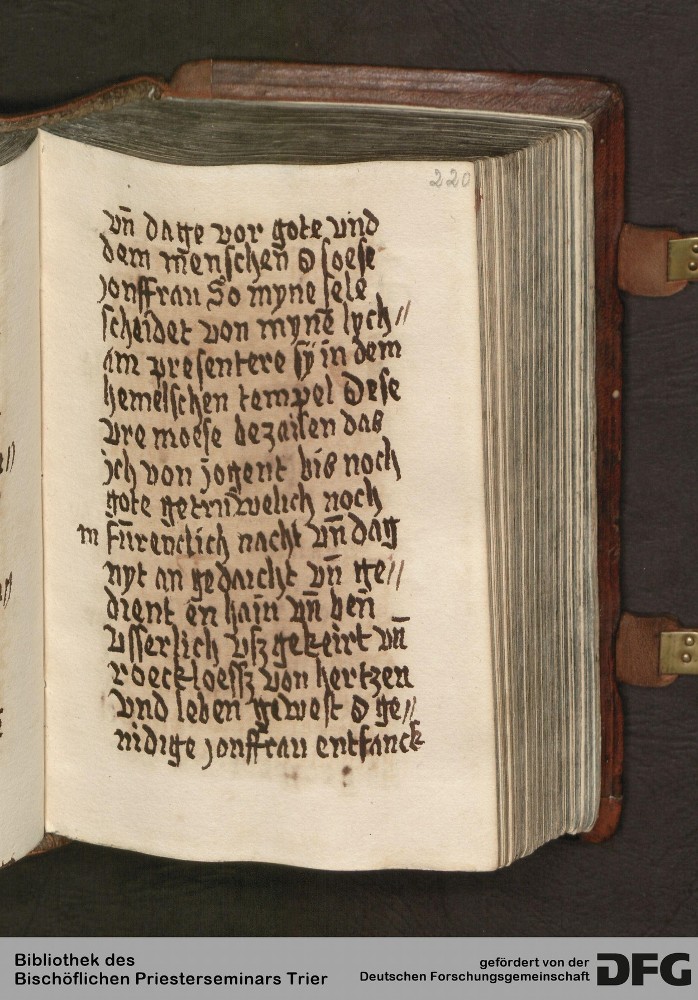 220
vn̄ dage vor gote vnd
dem menschen O soese
jonffrau So myne sele
scheidet von mynē lych//
am presentere sÿ in dem
hemelschen tempel Dese
vre moese bezailen das
jch von jogent bis noch
gote getruwelich noch
m furenclich nacht vn̄ dag
nyt an gedaicht vn̄ ge//
dient en hain vn̄ ben
vsserlich vsz gekeirt vn̄
roeckloessz von hertzen
vnd leben gewest O ge//
nidige jonffrau entfanck
Bibliothek des
Bischöflichen Priesterseminars Trier
gefördert von der
Deutschen Forschungsgemeinschaft
DFG